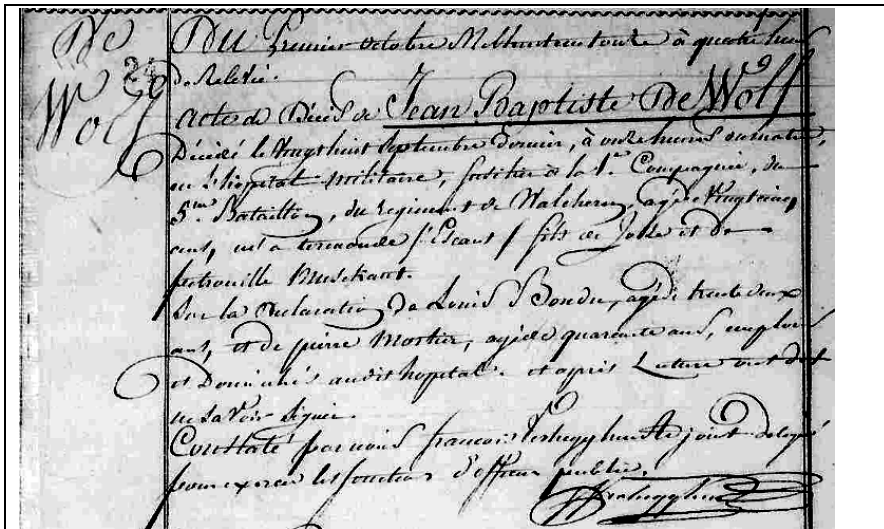 De
Wolf
24
Du Premier octobre Mil huit cent onze à quatre heures
de Relevée.
Acte de Décès de Jean Baptiste De Wolf
Décédé le Vingt huit Septembre dernier, à onze heures du matin,
en l'hopital militaire, fusilier à la 1re Compagnie, du
5me Bataillon, du regiment de Walcheren, agé de Vingt cinq
ans, né a termonde / Escaut / fils de Josse et de
petronille
Sur la Declaration De Louis Bondu, agé de trente deux
ans, et de pierre Mortier, agé de quarante ans, employés
et Domiciliés audit hopital: et apres Lecture ont dit
ne savoir signer.
Constaté par nous francois adjoint delegué
pour exercer les fonctions d'officier public.